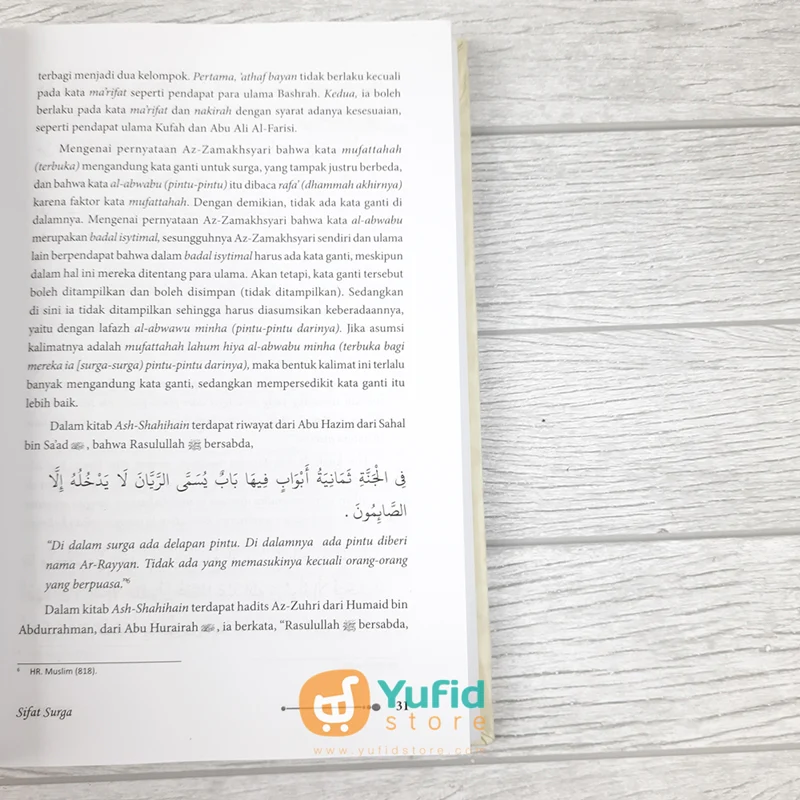 terbagi menjadi dua kelompok. Pertama, 'athaf bayan tidak berlaku kecuali
pada kata ma'rifat seperti pendapat para ulama Bashrah. Kedua, ia boleh
berlaku pada kata ma'rifat dan nakirah dengan syarat adanya kesesuaian,
seperti pendapat ulama Kufah dan Abu Ali Al-Farisi.
Mengenai pernyataan Az-Zamakhsyari bahwa kata mufattahah
(terbuka) mengandung kata ganti untuk surga, yang tampak justru berbeda,
dan bahwa kata al-abwabu (pintu-pintu) itu dibaca rafa' (dhammah akhirnya)
karena faktor kata mufattahah. Dengan demikian, tidak ada kata ganti di
dalamnya. Mengenai pernyataan Az-Zamakhsyari bahwa kata al-abwabu
merupakan badal isytimal, sesungguhnya Az-Zamakhsyari sendiri dan ulama
lain berpendapat bahwa dalam badal isytimal harus ada kata ganti, meskipun
dalam hal ini mereka ditentang para ulama. Akan tetapi, kata ganti tersebut
boleh ditampilkan dan boleh disimpan (tidak ditampilkan). Sedangkan
di sini ia tidak ditampilkan sehingga harus diasumsikan keberadaannya,
yaitu dengan lafazh al-abwawu minha (pintu-pintu darinya). Jika asumsi
kalimatnya adalah mufattahah lahum hiya al-abwabu minha (terbuka bagi
mereka ia [surga-surga) pintu-pintu darinya), maka bentuk kalimat ini terlalu
banyak mengandung kata ganti, sedangkan mempersedikit kata ganti itu
lebih baik.
Dalam kitab Ash-Shahihain terdapat riwayat dari Abu Hazim dari Sahal
bin Sa'ad, bahwa Rasulullah ﷺ bersabda,
فِي الْجَنَّةِ ثَمَانِيَةُ أَبْوَابٍ فِيهَا بَابٌ يُسَمَّى الرَّيَّانَ لَا يَدْخُلُهُ إِلَّا
الصَّائِمُونَ .
"Di dalam surga ada delapan pintu. Di dalamnya ada pintu diberi
nama Ar-Rayyan. Tidak ada yang memasukinya kecuali orang-orang
yang berpuasa."6
Dalam kitab Ash-Shahihain terdapat hadits Az-Zuhri dari Humaid bin
Abdurrahman, dari Abu Hurairah, ia berkata, "Rasulullah ﷺ bersabda,
6 HR. Muslim (818).
Sifat Surga
31
Yufid
store
www.yufidstore.com